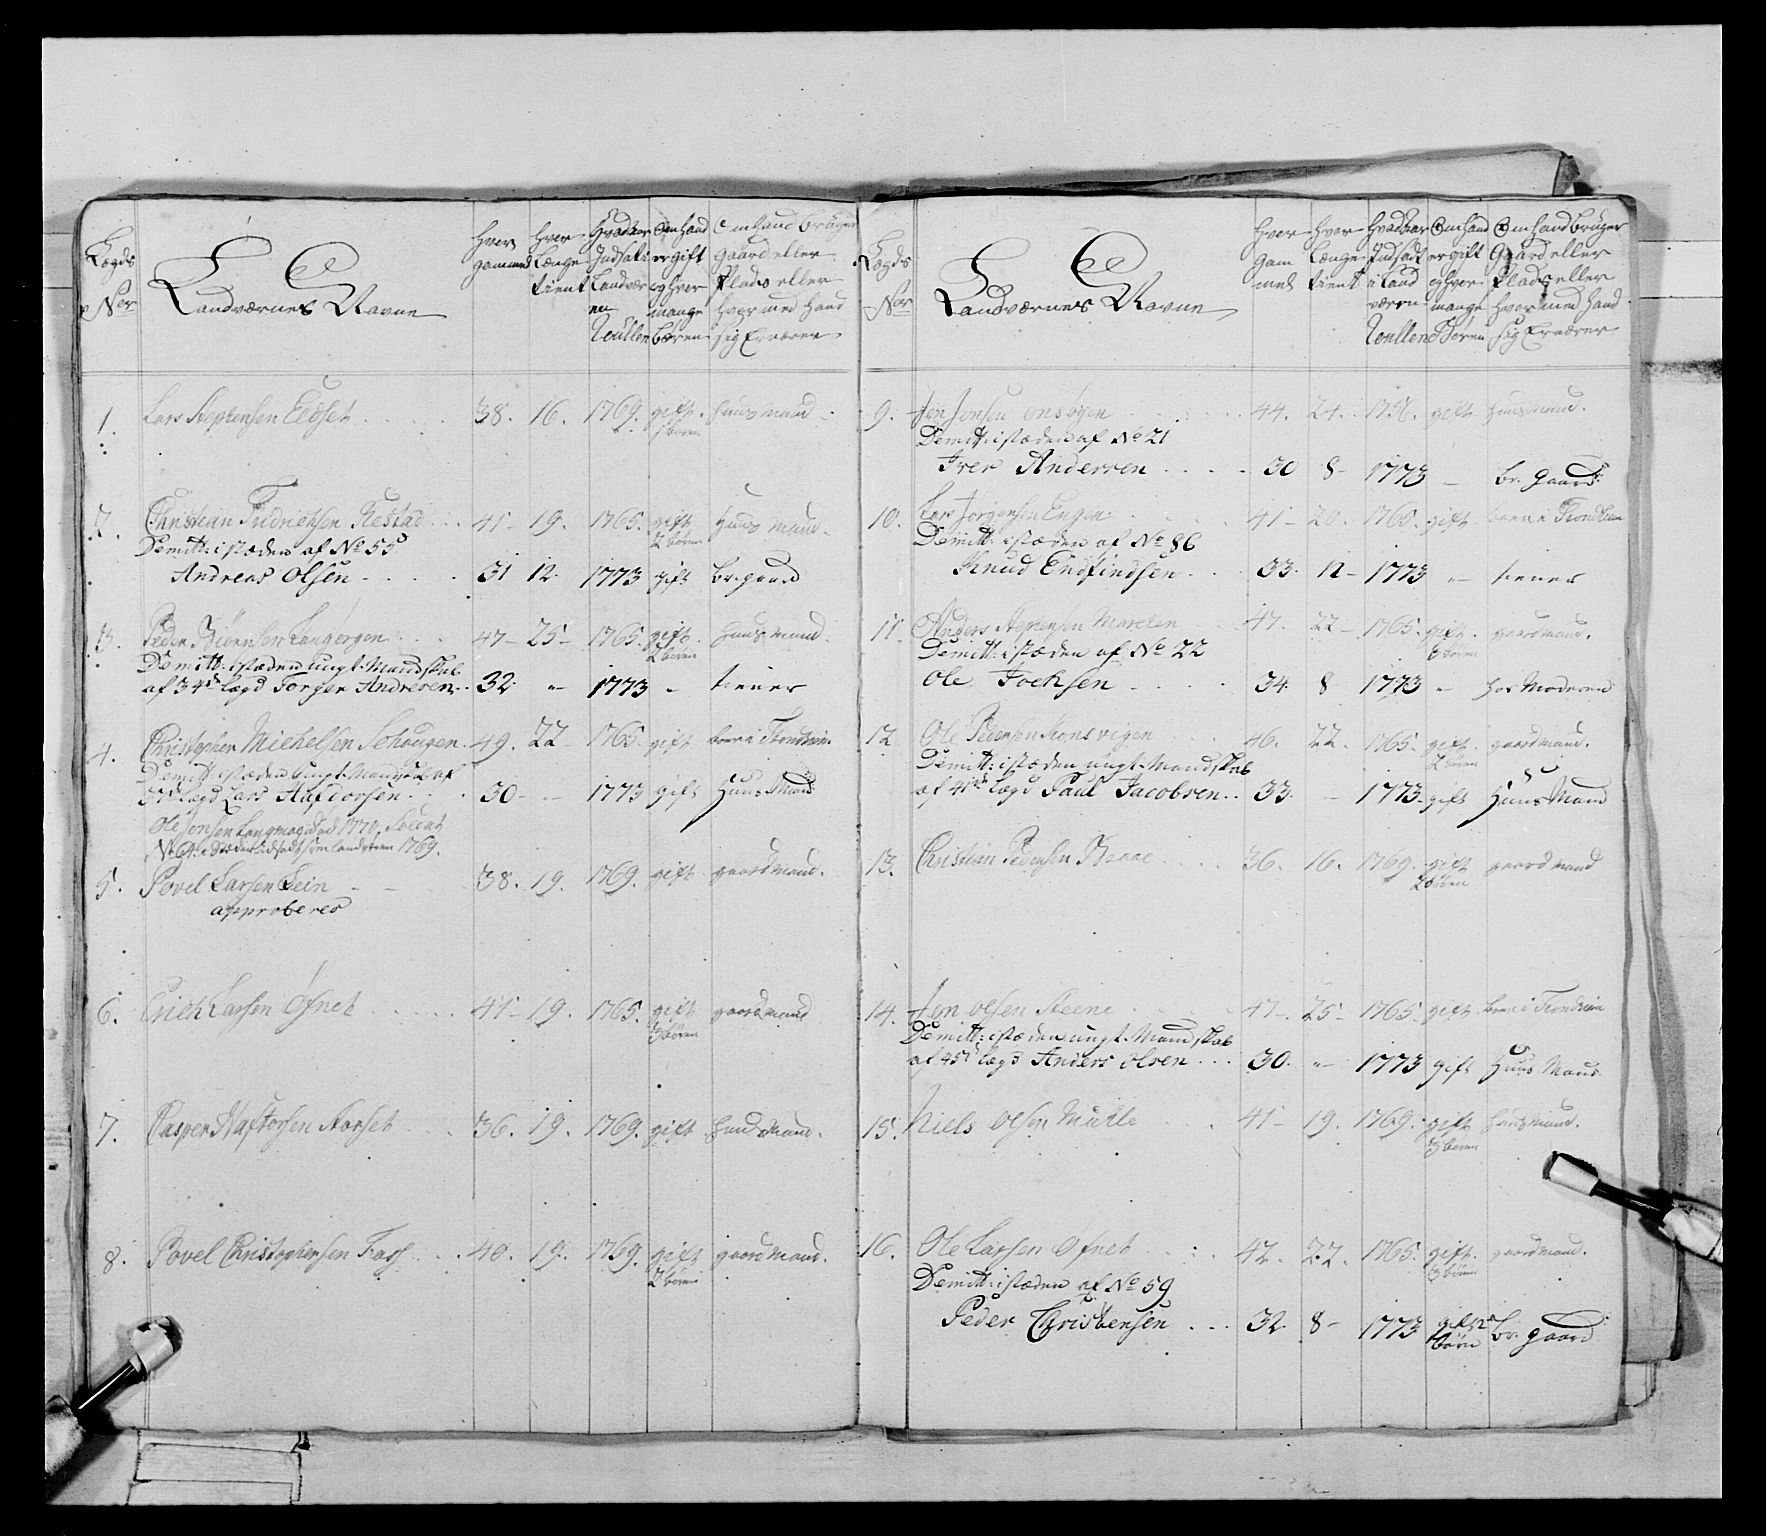 Lægds No:r
Landværnes Navne
Hvor gammel
Hvor Længe tient
Hvad Aar Indsatt i Landværn Rullen
Om Hand er gift og hvor mange Børen
Om Hand Brüger gaard eller Plads eller hvor med Hand sig Ernærer
1. Lars Stephensen Eidset 38. 16. 1769. gift. huusmand
1 børen
2. Christian Fridrichsen Restad 41 19. 1765. gift Huusmand
2 børen
Demitt: i stæden af No 55
Andreas Olsen 31 12. 1773 gift br. gaard
3. Peder 47 25 1765. gift huusmand.
2 børen
Demitt: i stæden ungt Mandskab
af 34d lægd Torger Andersen 32. " 1773 " tiener
4. Christopher Michelsen Schougen. 49. 22 1765. gift boer i Trondhiem
Demitt: i stæden Ungt Mandskab af
37d lægd Lars Hafdorsen 30 - 1773 gift Huus Mand
Ole Jonsen 1770, Soldat
No 64. i Stedet Indsadt som landværn 1769.
5. Povel Larsen Lein 38. 19. 1769. gift. gaardmand.
approberes
6. Erich Larsen Øfnet 41 19. 1765. gift gaardmand
3 børen
7. Casper Hafstorsen Aarset 36. 19. 1769. gift huusmand.
8. Povel Christophersen Fass 40. 19. 1769. gift gaardmand.
2 børen
Lægds No:r
Landværnes Navne
Hvor gammel
Hvor Længe tient
Hvad Aar Indsadt i Land værn Rullen
Om hand er gift og hvor mange Børen
Om hand Brüger Gaard eller Plads eller hvor med hand sig Ernærer
9. Jon Jonsen 44. 24. 1756. gift huusmand.
Demitt: i stæden af No 21
Iver Andersen 30 8 1773 — br. gaard
10. Lars Jørgensen Engen 41 20. 1765. gift boer i Trondhiem
Demitt: i stæden af No 86
Knud Endfindsen 33. 12 1773 " tiener
11. Anders Stephensen 47. 22 1765. gift. gaardmand.
3 børen
Demitt: i stæden af No 22
Ole Jochsen 34. 8 1773 " hos Moderen
12. Ole Pedersen 46. 22. 1765. gift. gaardmand.
2 børen
Demitt: i stæden ungt Mandskab
af 41de lægd Paul Jacobsen 33. - 1773 gift Huus Mand
13. Christian Pedersen 36. 16. 1769. gift gaardmand
2 børen
14. Jon Olsen Steene 47. 25 1765. gift boer i Trondhiem
Demitt: i stæden ungt Mandskab
af 45d lægd Anders Olsen 30. " 1773 gift Huus Mand
15. Niels Olsen Mulle 41 19. 1769. gift huusmand.
3 børen
16. Ole Larsen Øfnet 42. 22. 1765. gift. gaardmand.
3 børen
Demitt: i stæden af No 59
Peder Christensen 32 8 1773 gift 2 børn br. gaard